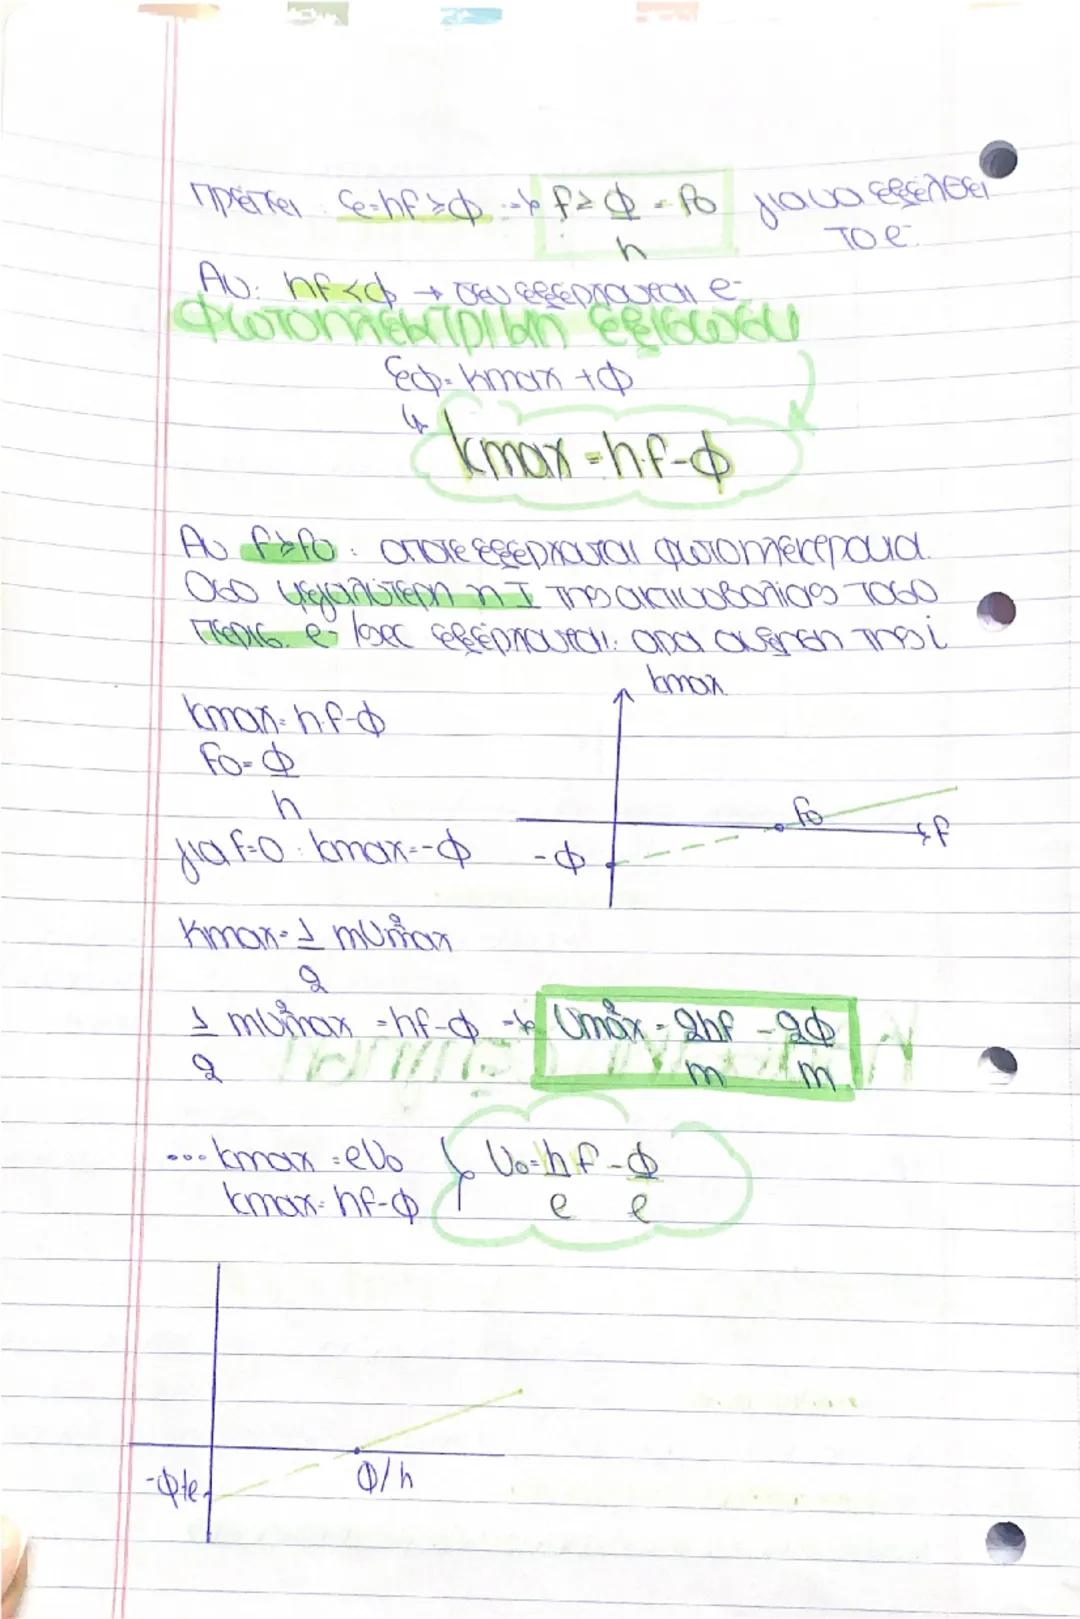 Πρέπει: ε=hf≥Φ → f≥Φ/h = fo για να εξέλθει
το e-
Αν: hf<Φ → δεν εξέρχονται e-
Φωτοηλεκτρική εξίσωση
εφ=Kmax+Φ
↳ Kmax=h·f-Φ
Αν f≥fo: οποτε εξέρχονται φωτοηλεκτρόνια.
Οσο μεγαλύτερη η I της ακτινοβολίας τοσο
περισ. e-/sec εξέρχονται. αρα αυξηση της i
Kmax=h·f-Φ
fo=Φ/h
για f=0: Kmax=-Φ
Kmax
fo
f
-Φ
Kmax=1/2 mU²max
1/2 mU²max=hf-Φ → U²max=2hf/m-2Φ/m
...Kmax=eVo
Kmax=hf-Φ
Vo=h/e f-Φ/e
-Φ/e
Φ/h